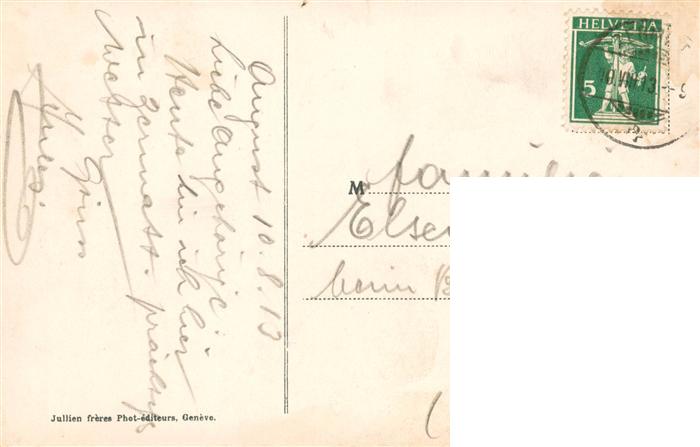 August 10. 8. 13
Liebe Angehörige:
Heute bin ich hier
in Zermatt. prächtiges
Wetter Gruss
Jules.
HELVETIA
5
10.VIII.13.-9
M Familie
berin
Jullien frères Phot-éditeurs, Genève.